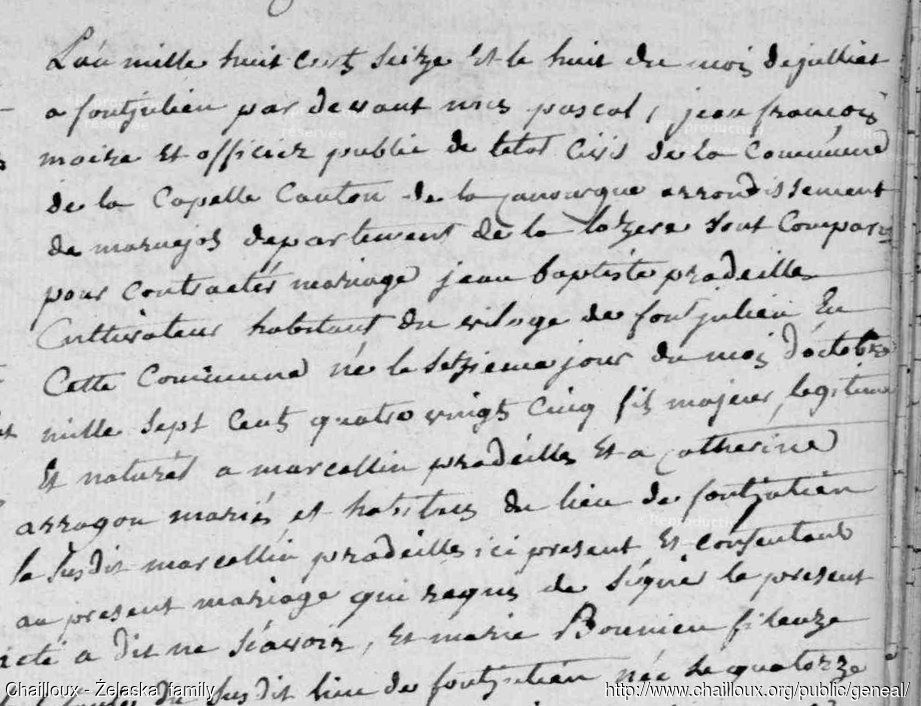 L'an mille huit cents seize et le huit du mois de julliet
a fontjulien par devant nous pascal, jean françois
maire et officier public de letat civil de la Commune
de la Capelle Canton de la Canourgue arrondissement
de maruejols departement de la lozere sont Comparus
pour contracter mariage jean baptiste pradeilles
Cultivateur habitant du vilage de fontjulien En
Cette Commune né le seizieme jour du mois d'octobre
mille sept cents quatre vingts cinq fils majeur, legitime
Et naturel a marcellin pradeilles Et a Catherine
arragon mariés et habitans du lieu de fontjulien
le susdit marcellin pradeilles ici present Et consentant
au present mariage qui requis de signé le present
acté a dit ne sçavoir, Et marie Bounieu fileuze
du susdit lieu de fontjulien née le quatorze
Chailloux - Żelaska family
http://www.chailloux.org/public/geneal/
© Reproduction
réservée